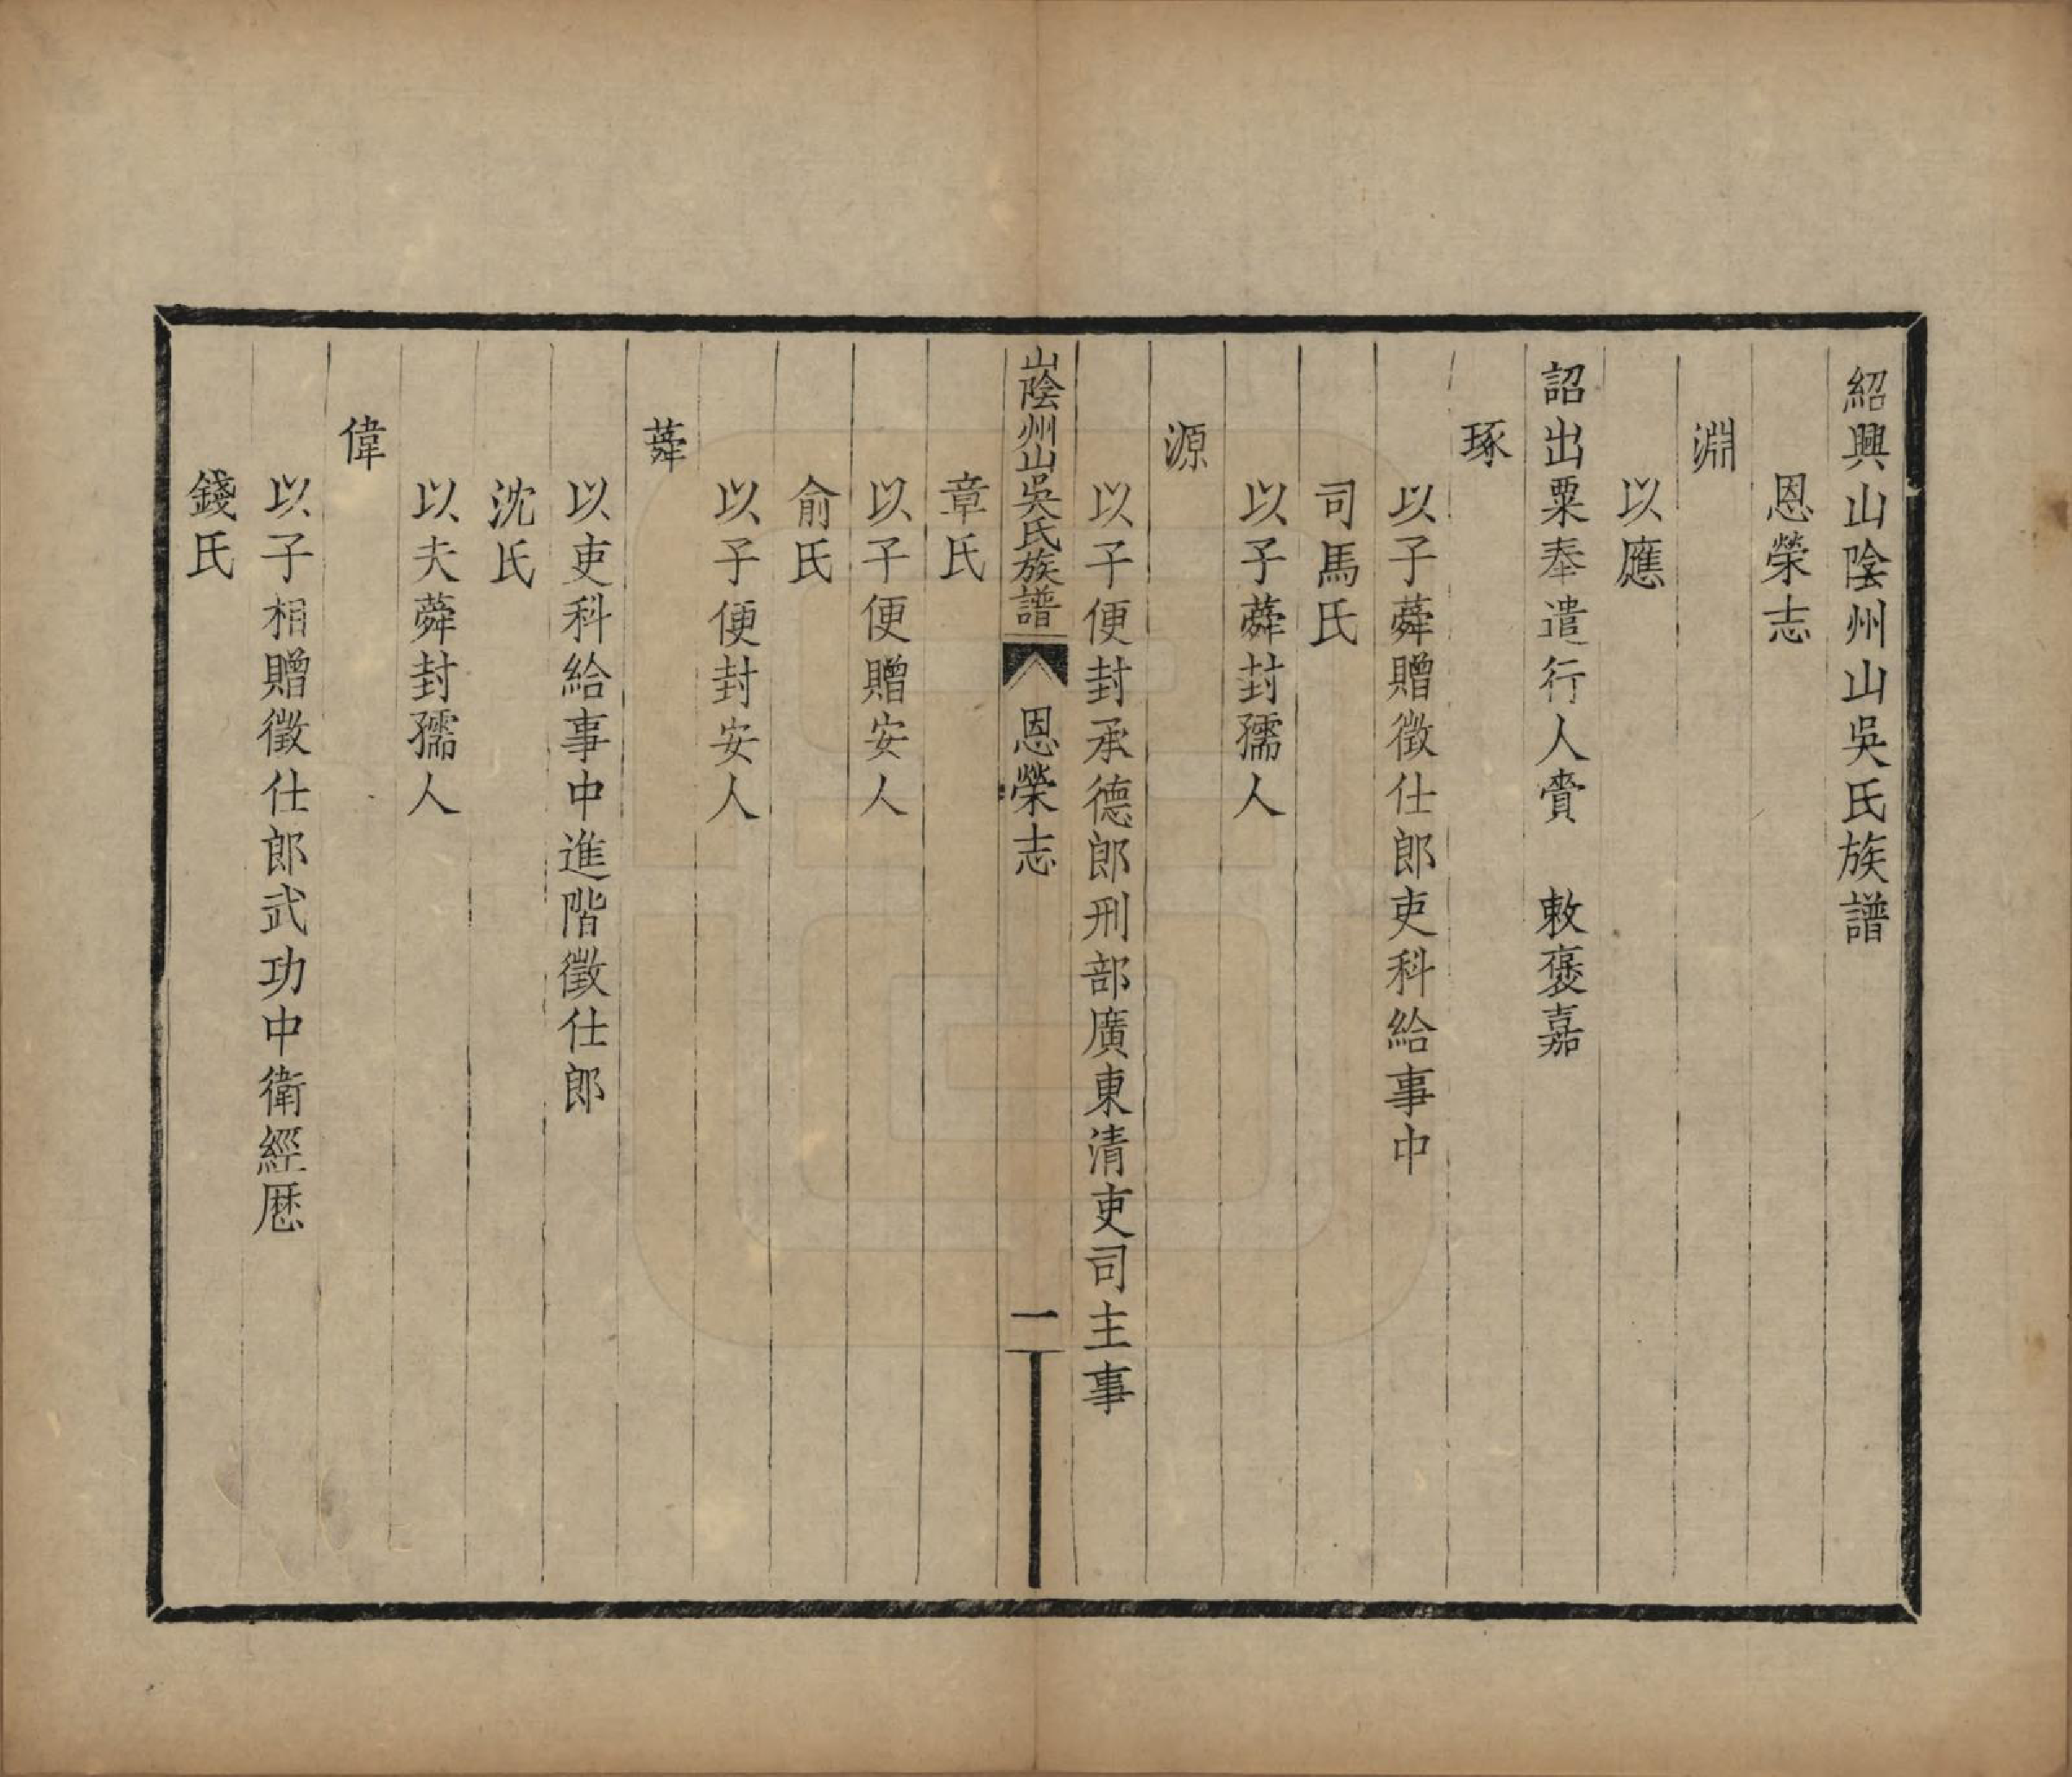 紹興山陰州山吳氏族譜
恩榮志
淵
以應
詔出粟奉遣行人賫　敕褒嘉
琢
以子蕣贈徵仕郎吏科給事中
司馬氏
以子蕣封孺人
源
以子便封承德郎刑部廣東清吏司主事
山陰州山吳氏族譜　恩榮志　一
章氏
以子便贈安人
俞氏
以子便封安人
蕣
以吏科給事中進階徵仕郎
沈氏
以夫蕣封孺人
偉
以子相贈徵仕郎武功中衛經歷
錢氏